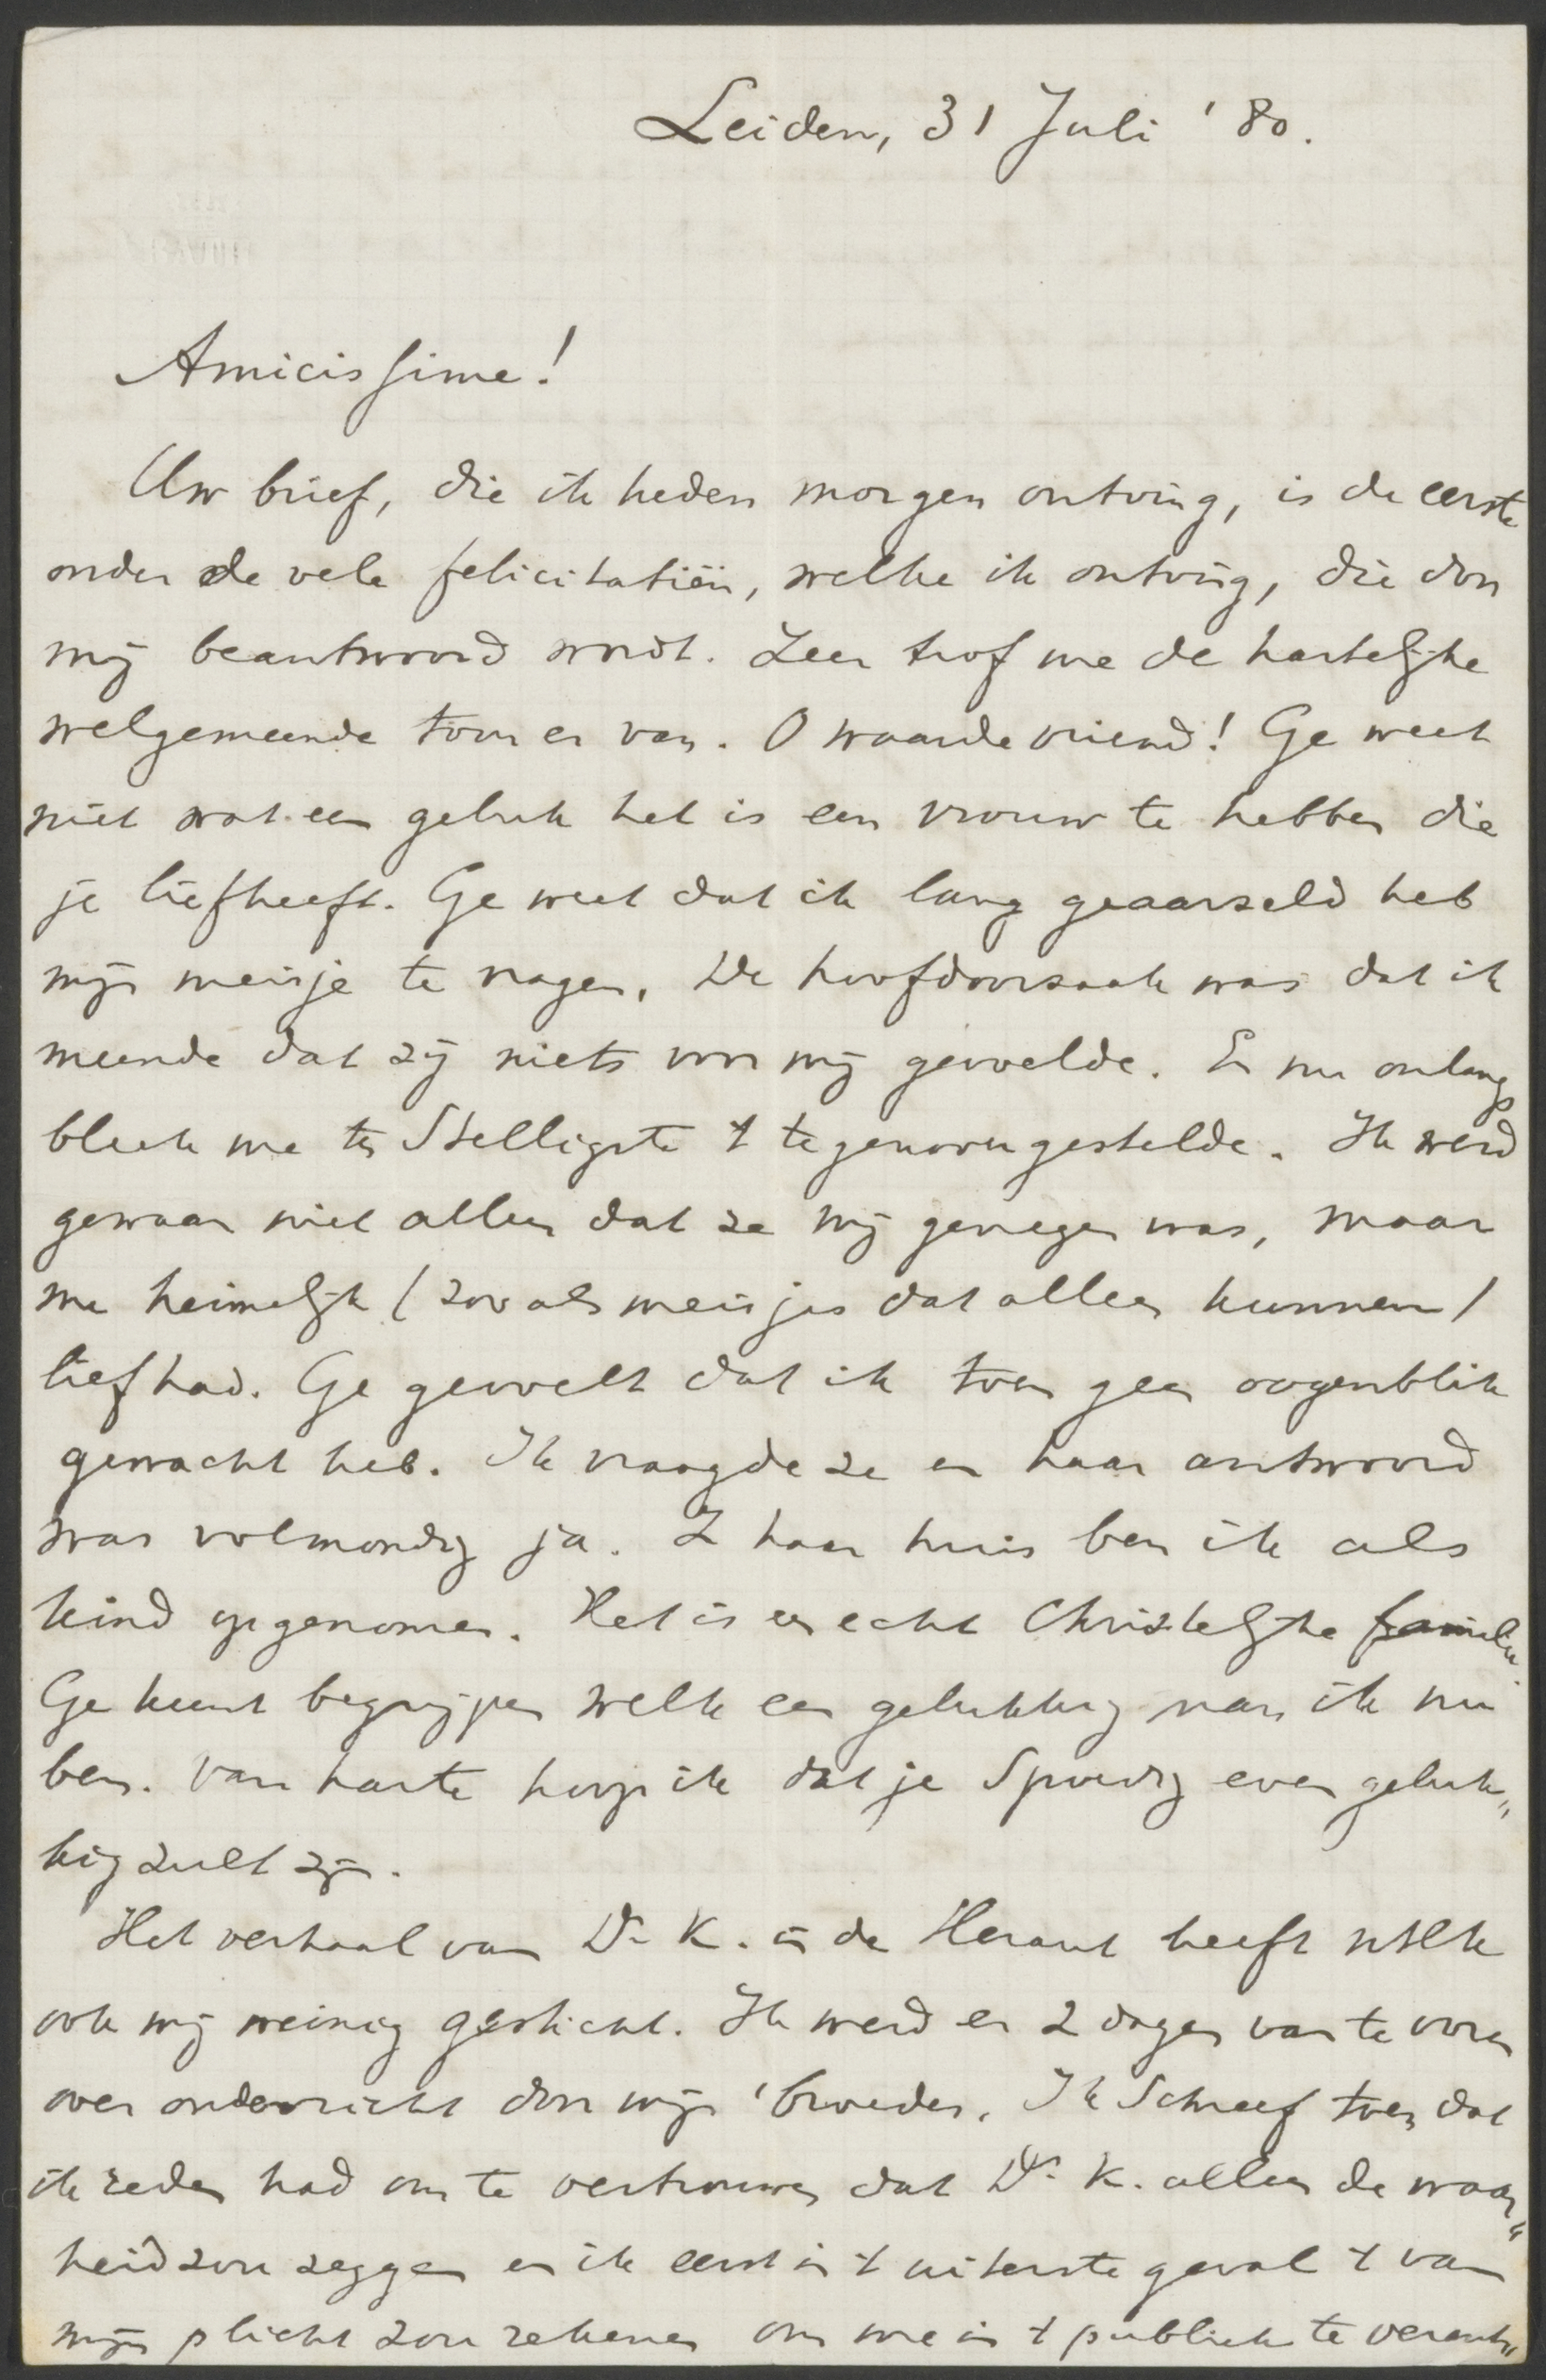 Leiden, 31 Juli '80.
Amicissime!
Uw brief, die ik heden morgen ontving, is de eerste
onder de vele felicitatiën, welke ik ontving, die door
mij beantwoord wordt. Zeer trof me de hartelijke
welgemeende toon er van. O waarde vriend! Ge weet
niet wat een geluk het is een vrouw te hebben die
je liefheeft. Ge weet dat ik lang geaarzeld heb
mijn meisje te vragen. De hoofdoorzaak was dat ik
meende dat zij niets voor mij gevoelde. En nu onlangs
bleek me ten stelligste 't tegenovergestelde. Ik werd
gewaar niet alleen dat ze mij genegen was, maar
me heimelijk (zooals meisjes dat alleen kunnen)
liefhad. Ge gevoelt dat ik toen geen oogenblik
gewacht heb. Ik vraagde ze en haar antwoord
was volmondig ja. In haar huis ben ik als
kind opgenomen. Het is een echt Christelijke familie.
Ge kunt begrijpen welk een gelukkig man ik nu
ben. Van harte hoop ik dat je spoedig even geluk„
kig zult zijn.
Het verhaal van Dr. K. in de Heraut heeft
ook mij weinig gesticht. Ik werd er 2 dagen van te voren
over onderricht door mijn broeder. Ik schreef toen dat
ik reden had om te vertrouwen dat Dr. K. alleen de waar„
heid zou zeggen en ik eerst in 't uiterste geval 't van
mijn plicht zou rekenen om me in 't publiek te verant„